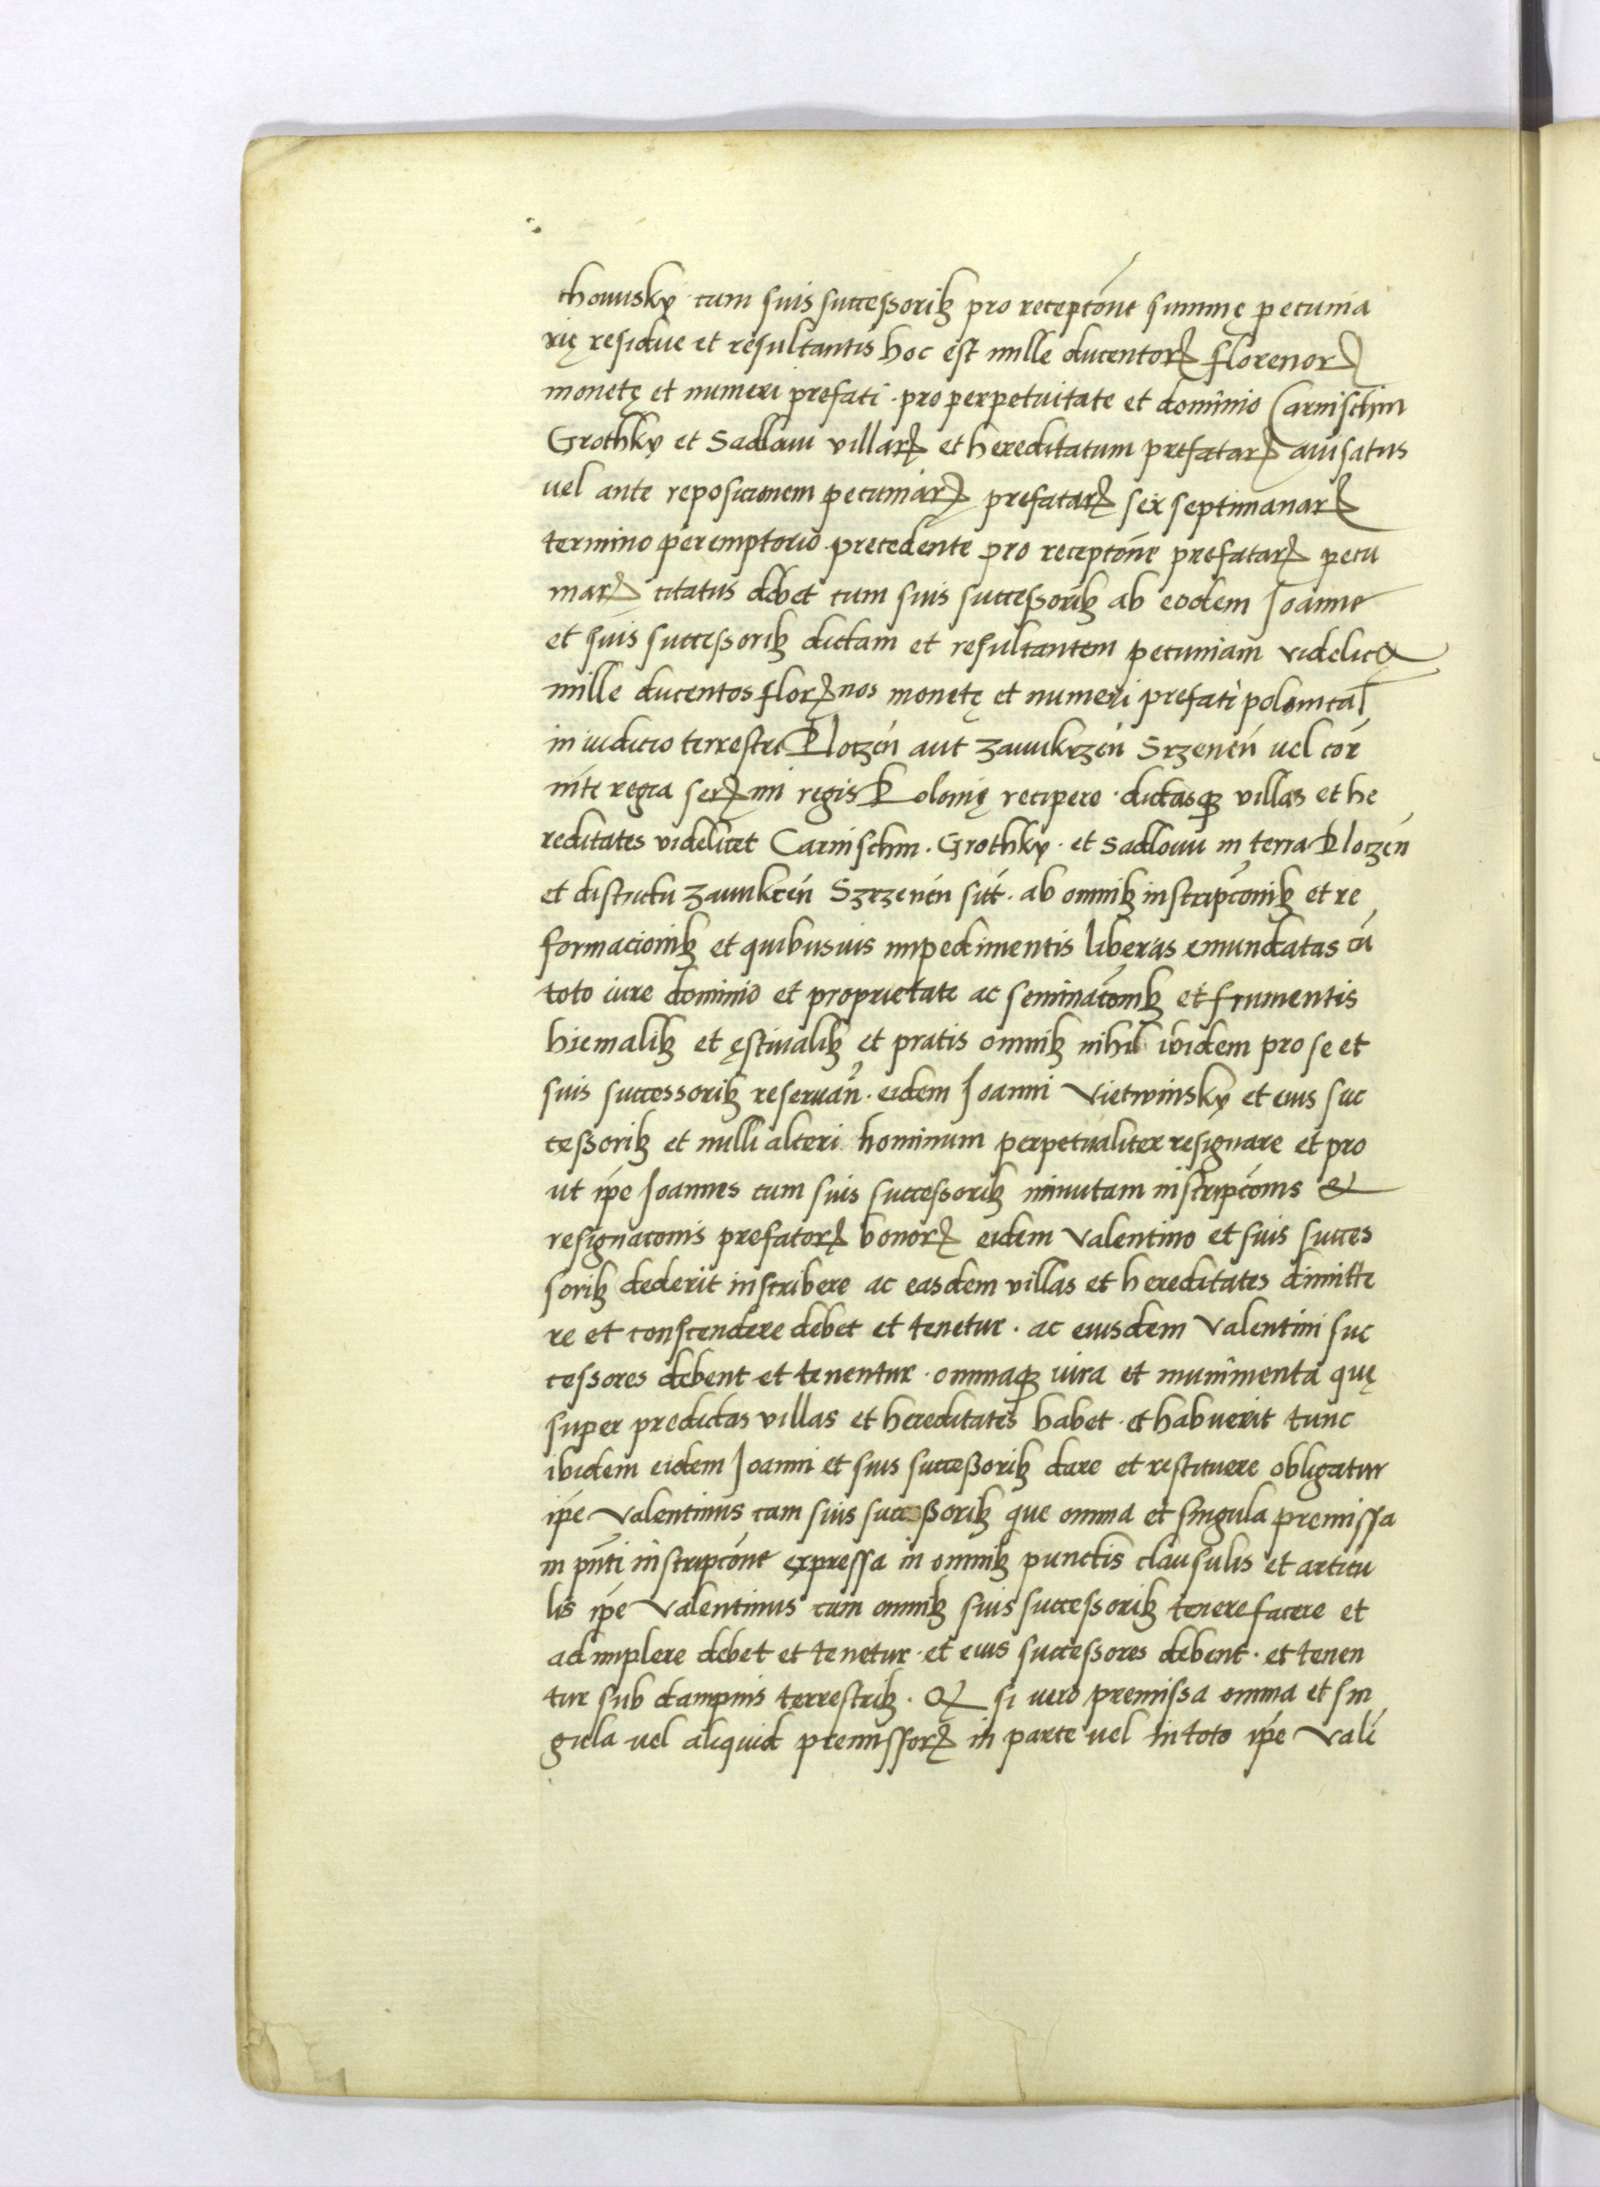 chowsky cum suis successoribꝫ pro receptōne summę pecunia
rię residue et resultantis hoc est mille ducentorꝝ florenorꝝ
monetę et numeri prefati · pro perpetuitate et dominio Carnischin
Grothky et Sadlow villarꝝ et hereditatum prefatarꝝ auisatus
uel ante reposicionem pecuniarꝝ prefatarꝝ sex septimanarꝝ
termino peremptorio precedente pro receptōne prefatarꝝ pecu
niarꝝ citatus debet cum suis successoribꝫ ab eodem Joanne
et suis successoribꝫ dictam et resultantem pecuniam videlicet
mille ducentos florenos monetę et numeri prefati polonical
in iudicio terrestri Ploczeń aut zawkrzeń Srzeneń uel cor
mīte regia serꝫmi regis Polonię recipere · dictasqꝫ villas et he
reditates videlicet Carnischin · Grothky · et Sadlow in terra Ploczeń
et districtu zawkreń Szrzeneń sitt · ab omnibꝫ inscripc̄onibꝫ et re
formacionibꝫ et quibusuis impedimentis liberas emundatas cū
toto iure dominio et proprietate ac seminac̄onibꝫ et frumentis
hiemalibꝫ et ęstiualibꝫ et pratis omnibꝫ nihil ibidem pro se et
suis successoribꝫ reseruań · eidem Joanni Vietwinsky et eius suc
cessoribꝫ et nulli alteri hominum perpetualiter resignare et pro
ut ip̄e Joannes cum suis successoribꝫ minutam inscripc̄onis et
resignaconis prefatorꝝ bonorꝝ eidem Valentino et suis succes
soribꝫ dederit inscribere ac easdem villas et hereditates dimitte
re et conscendere debet et tenetur · ac eiusdem Valentini suc
cessores debent et tenentur · omniaqꝫ iura et munimenta quę
super predictas villas et hereditates habet · et habuerit tunc
ibidem eidem Joanni et suis successoribꝫ dare et restituere obligatur
ip̄e Valentinus cum suis successoribꝫ que omnia et singula premissa
in pn̄ti inscripc̄one expressa in omnibꝫ punctis clausulis et articu
lis ip̄e Valentinus cum omnibꝫ suis successoribꝫ tenere facere et
adimplere debet et tenetur · et eius successores debent · et tenen
tur sub dampnis terrestribꝫ · Et si vero premissa omnia et sin
gula uel aliquid premissorꝝ in parte uel in toto ip̄e Valē